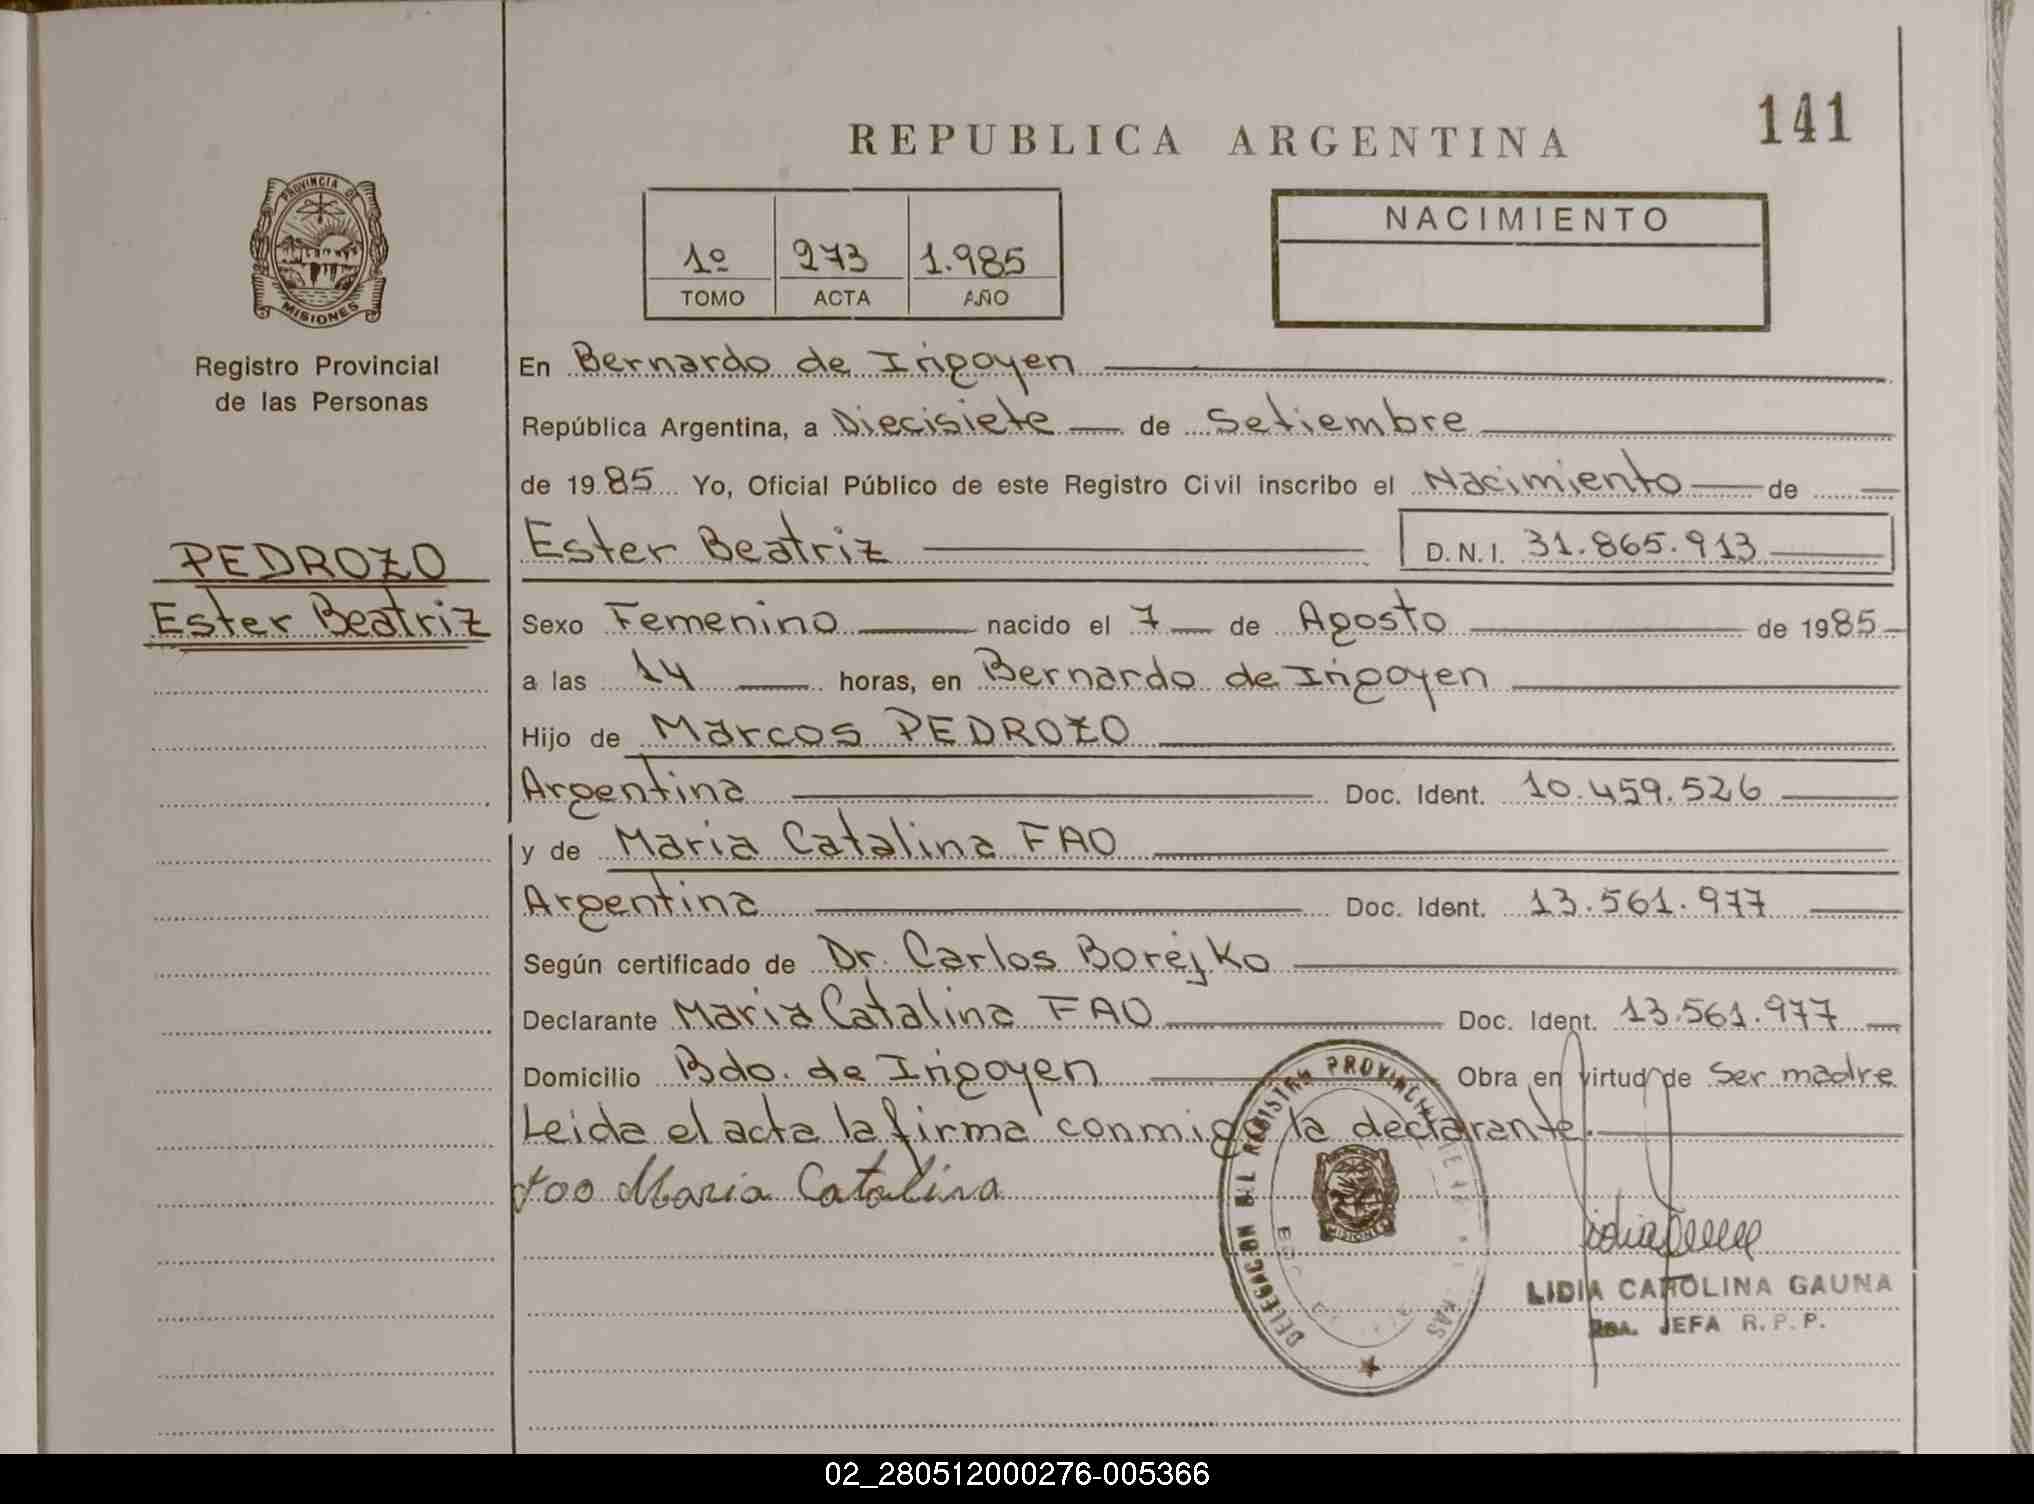 141
REPUBLICA ARGENTINA
PROVINCIA DE
MISIONES
Registro Provincial
de las Personas
1º 273 1.985
TOMO ACTA AÑO
NACIMIENTO
En Bernardo de Irigoyen
República Argentina, a Diecisiete de Setiembre
de 1985 Yo, Oficial Público de este Registro Civil inscribo el Nacimiento de
PEDROZO
Ester Beatriz
Ester Beatriz D.N.I. 31.865.913
Sexo Femenino nacido el 7 de Agosto de 1985
a las 14 horas, en Bernardo de Irigoyen
Hijo de Marcos PEDROZO
Argentina Doc. Ident. 10.459.526
y de Maria Catalina FAO
Argentina Doc. Ident. 13.561.977
Según certificado de Dr. Carlos Borejko
Declarante Maria Catalina FAO Doc. Ident. 13.561.977
Domicilio Bdo. de Irigoyen Obra en virtud de Ser madre
Leida el acta la firma conmigo la declarante.
Maria Catalina
DELEGACION DEL REGISTRO PROVINCIAL DE LAS
MISIONES
LIDIA CAROLINA GAUNA
JEFA R.P.P.
02_280512000276-005366